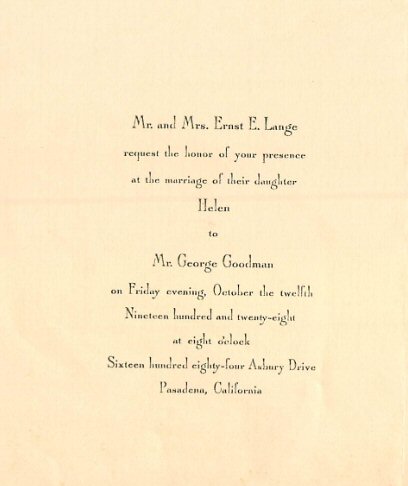 Mr. and Mrs. Ernst E. Lange
request the honor of your presence
at the marriage of their daughter
Helen
to
Mr. George Goodman
on Friday evening, October the twelfth
Nineteen hundred and twenty-eight
at eight o'clock
Sixteen hundred eighty-four Asbury Drive
Pasadena, California